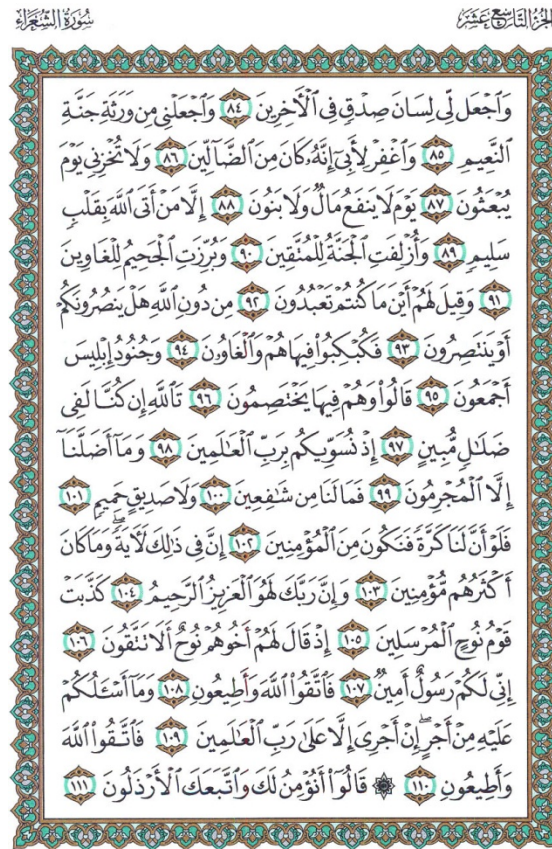 الجزء التاسع عشر
سورة الشعراء
وَٱجْعَل لِّى لِسَانَ صِدْقٍ فِى ٱلْأَخِرِينَ ٨٤ وَٱجْعَلْنِى مِن وَرَثَةِ جَنَّةِ
ٱلنَّعِيمِ ٨٥ وَٱغْفِرْ لِأَبِىٓ إِنَّهُۥ كَانَ مِنَ ٱلضَّآلِّينَ ٨٦ وَلَا تُخْزِنِى يَوْمَ
يُبْعَثُونَ ٨٧ يَوْمَ لَا يَنفَعُ مَالٌ وَلَا بَنُونَ ٨٨ إِلَّا مَنْ أَتَى ٱللَّهَ بِقَلْبٍ
سَلِيمٍ ٨٩ وَأُزْلِفَتِ ٱلْجَنَّةُ لِلْمُتَّقِينَ ٩٠ وَبُرِّزَتِ ٱلْجَحِيمُ لِلْغَاوِينَ
٩١ وَقِيلَ لَهُمْ أَيْنَ مَا كُنتُمْ تَعْبُدُونَ ٩٢ مِن دُونِ ٱللَّهِ هَلْ يَنصُرُونَكُمْ
أَوْ يَنتَصِرُونَ ٩٣ فَكُبْكِبُوا۟ فِيهَا هُمْ وَٱلْغَاوُۥنَ ٩٤ وَجُنُودُ إِبْلِيسَ
أَجْمَعُونَ ٩٥ قَالُوا۟ وَهُمْ فِيهَا يَخْتَصِمُونَ ٩٦ تَٱللَّهِ إِن كُنَّا لَفِى
ضَلَٰلٍ مُّبِينٍ ٩٧ إِذْ نُسَوِّيكُم بِرَبِّ ٱلْعَٰلَمِينَ ٩٨ وَمَآ أَضَلَّنَآ
إِلَّا ٱلْمُجْرِمُونَ ٩٩ فَمَا لَنَا مِن شَٰفِعِينَ ١٠٠ وَلَا صَدِيقٍ حَمِيمٍ ١٠١
فَلَوْ أَنَّ لَنَا كَرَّةً فَنَكُونَ مِنَ ٱلْمُؤْمِنِينَ ١٠٢ إِنَّ فِى ذَٰلِكَ لَأٓيَةً ۖ وَمَا كَانَ
أَكْثَرُهُم مُّؤْمِنِينَ ١٠٣ وَإِنَّ رَبَّكَ لَهُوَ ٱلْعَزِيزُ ٱلرَّحِيمُ ١٠٤ كَذَّبَتْ
قَوْمُ نُوحٍ ٱلْمُرْسَلِينَ ١٠٥ إِذْ قَالَ لَهُمْ أَخُوهُمْ نُوحٌ أَلَا تَتَّقُونَ ١٠٦
إِنِّى لَكُمْ رَسُولٌ أَمِينٌ ١٠٧ فَٱتَّقُوا۟ ٱللَّهَ وَأَطِيعُونِ ١٠٨ وَمَآ أَسْـَٔلُكُمْ
عَلَيْهِ مِنْ أَجْرٍ ۖ إِنْ أَجْرِىَ إِلَّا عَلَىٰ رَبِّ ٱلْعَٰلَمِينَ ١٠٩ فَٱتَّقُوا۟ ٱللَّهَ
وَأَطِيعُونِ ١١٠ ۞ قَالُوٓا۟ أَنُؤْمِنُ لَكَ وَٱتَّبَعَكَ ٱلْأَرْذَلُونَ ١١١